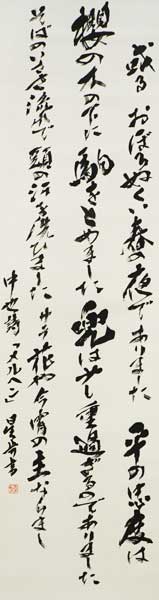 或るおぼろぬくい春の夜でありました 平の忠度は
櫻の木の下に駒をとめました 兜は少し重過ぎるのでありました
そばのいさゝ流れで頭の汗を洗ひました サテ花や今宵の主ならまし
中也詩 メルヘン